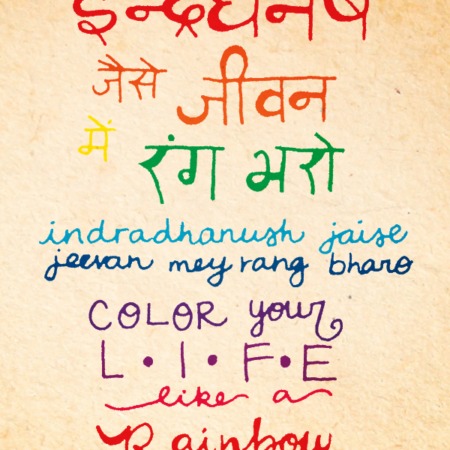 इन्द्रधनुष
जैसे जीवन
में रंग भरो
indradhanush jaise
jeevan mey rang bharo
COLOR your
L•I•F•E
like a
Rainbow